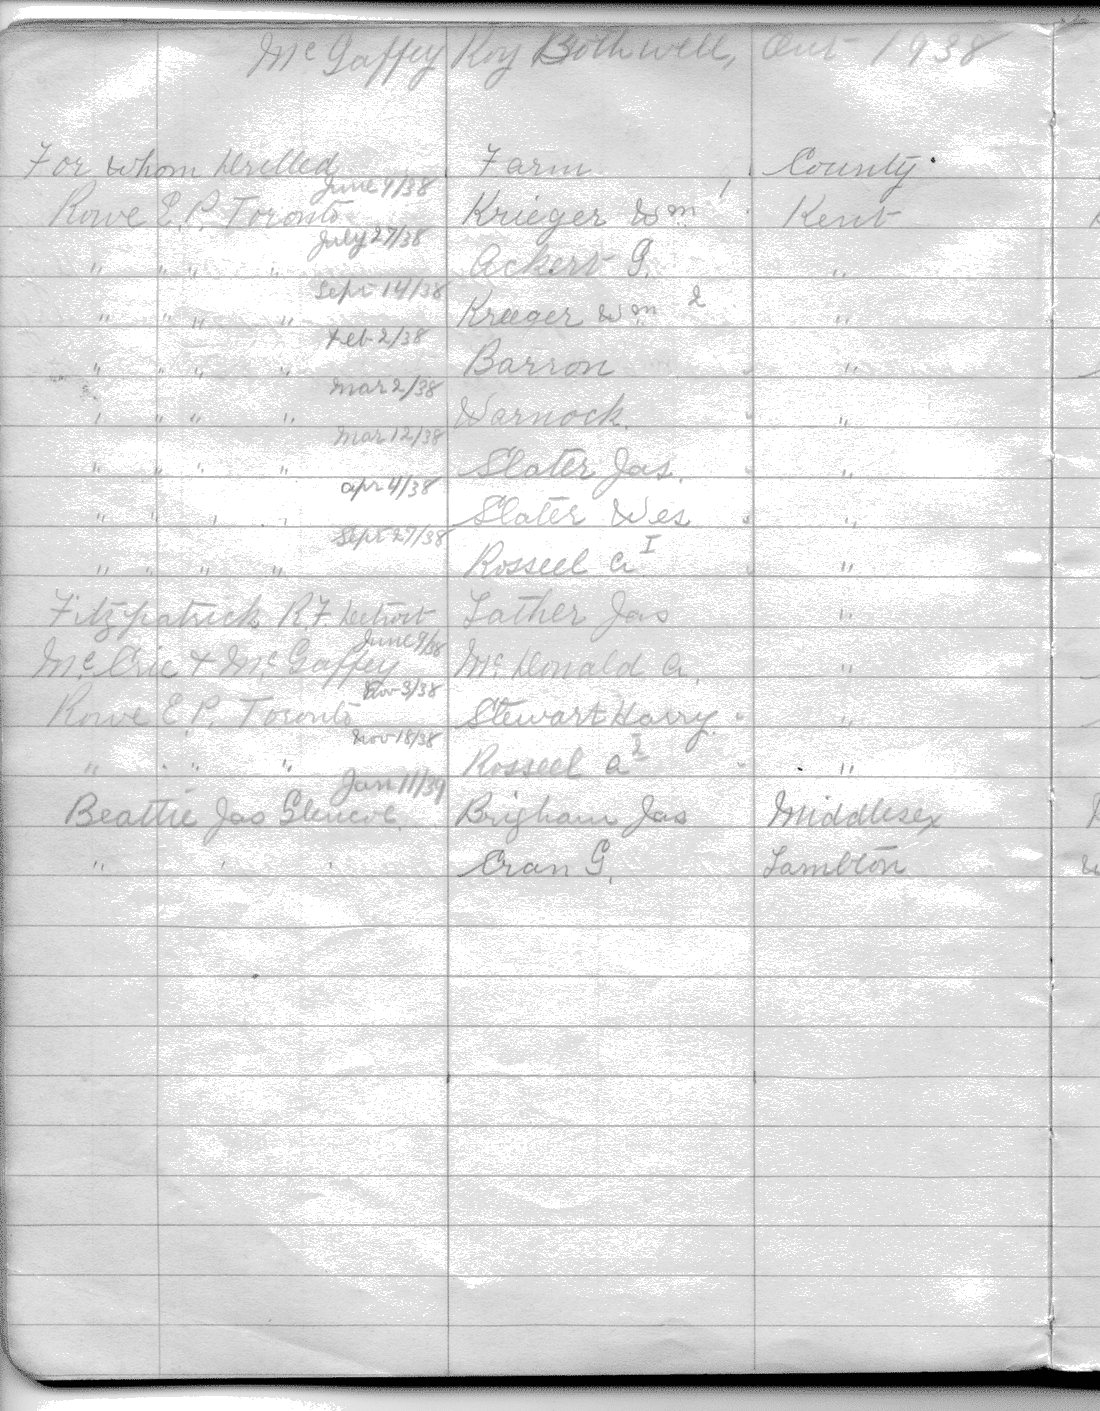 McGaffey Roy Bothwell, Ont 1938
For whom Drilled Farm County
June 9/38
Rowe E.P. Toronto Krieger Wm 1 Kent
July 27/38
" " " " Ackert G. "
Sept 14/38
" " " " Krieger Wm 2 "
Feb 2/38
" " " " Barron "
Mar 2/38
" " " " Warnock. "
Mar 12/38
" " " " Slater Jas. "
Apr 4/38
" " " " Slater Wes "
Sept 27/38
" " " " Rosseel A. I "
Fitzpatrick R.F. Detroit Lather Jas "
June 9/38
McCrie & McGaffey McDonald A. "
Nov 3/38
Rowe E.P. Toronto Stewart Harry "
Nov 18/38
" " " " Rosseel A 2 "
Jan 11/39
Beattie Jas Glencoe Brigham Jas Middlesex
" " " Oran G. Lambton